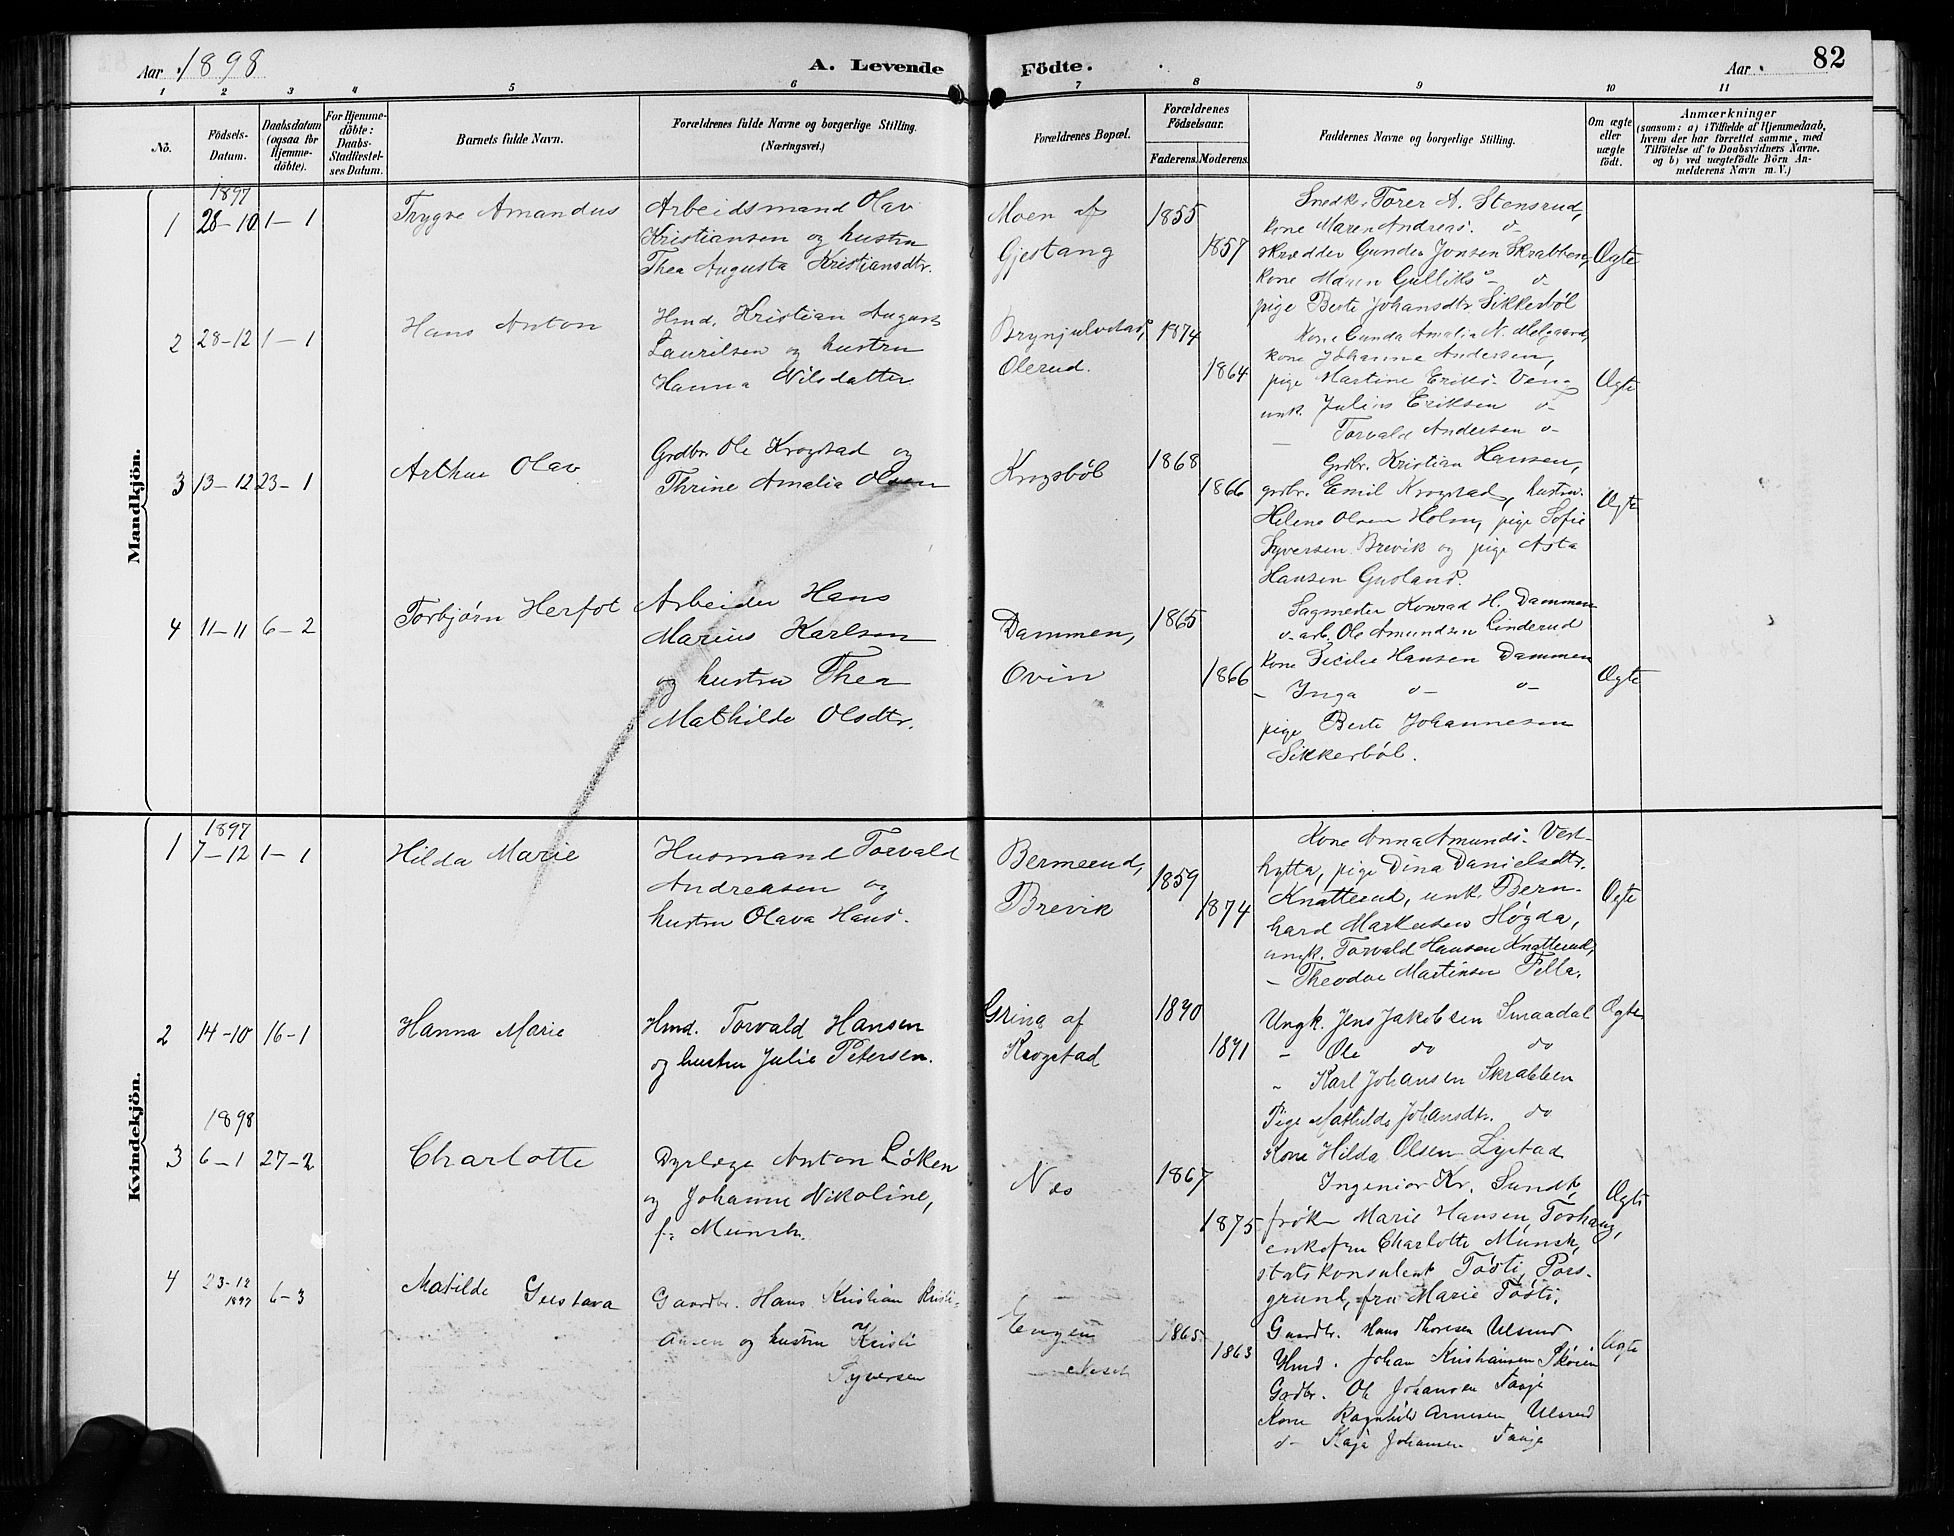 Aar 1898 A. Levende Födte. Aar 82
1 2 3 4 5 6 7 8 9 10 11
Nô.
Födsels-Datum.
Daabsdatum (ogsaa for Hjemmedöbte).
For Hjemmedöbte: Daabs-Stadfæstelses Datum.
Barnets fulde Navn.
Forældrenes fulde Navne og borgerlige Stilling.
(Næringsvei.)
Forældrenes Bopæl.
Forældrenes Födselsaar.
Faderens. Moderens.
Faddernes Navne og borgerlige Stilling.
Om ægte eller uægte födt.
Anmærkninger
(saasom: a) i Tilfælde af Hjemmedaab,
hvem der har forrettet samme, med
Tilföielse af to Daabsvidners Navne.
og b) ved uægtefödte Börn An-
melderens Navn m. V.)
Mandkjön.
1897
1 28-10 1-1
Trygve Amandus
Arbeidsmand Olav
Kristiansen og hustru
Thea Augusta Kristiansdtr.
Moen af
Gjestang
1855
1857
Snedk. Torer A. Stensrud,
kone Maren Andreas. o-
skrædder Gunder Jonsen Skrabben,
kone Maren Gulliks - o-
pige Berte Johansdtr Sikkerbøl
Ægte
2 28-12 1-1
Hans Anton
Hmd. Kristian August
Lauritsen og hustru
Hanna Nilsdatter
Brynjulvstad,
Olerud.
1874
1864
Kone Gunda Amalia N. Melgaard,
kone Johanne Andersen,
pige Martine Eriks. Ven
unk. Julius Eriksen o-
- Torvald Andersen o-
Ægte
3 13-12 23-1
Arthur Olav
Grdbr. Ole Krogstad og
Thrine Amalia Olsen
Krogsbøl
1868
1866
Grdbr. Kristian Hansen,
grdbr. Emil Krogstad, hustru
Helene Olsen Holm, pige Sofie
Syversen Brevik og pige Asta
Hansen Gusland.
Ægte
4 11-11 6-2
Torbjørn Herfot
Arbeider Hans
Marius Karlsen
og hustru Thea
Mathilde Olsdtr.
Dammen,
Ovin
1865
1866
Sagmester Konrad H. Dammen
o-arb. Ole Amundsen Linderud
kone Sicilie Hansen Dammen
- Inga o- o-
pige Berte Johannesen
Sikkerbøl.
Ægte
Kvindekjön.
1897
1 7-12 1-1
Hilda Marie
Husmand Torvald
Andreasen og
hustru Olava Hans.
Bermerud,
Brevik
1859
1874
Kone Anna Amunds. Vest-
hytta, pige Dina Danielsdtr.
Knatterud, unk. Bern-
hard Markusen Høgda,
ungk. Torvald Hansen Knatterud,
- Theodor Martinsen Fella.
Ægte
2 14-10 16-1
Hanna Marie
Hmd. Torvald Hansen
og hustru Julie Petersen.
Grina af
Krogstad
1870
1871
Ungk. Jens Jakobsen Smaadal
- Ole do do
- Karl Johansen Skrabben
Pige Mathilde Johansdtr. do
Kone Hilda Olsen Lystad
Ægte
1898
3 6-1 27-2
Charlotte
Dyrlæge Anton Løken
og Johanne Nikoline,
f. Münch.
Nes
1867
1875
Ingeniør Kr. Sundt,
frøken Marie Hansen Torhaug,
enkefru Charlotte Münch,
statskonsulent Tøsti, Pors-
grund, fru Marie Tøsti.
Ægte
4 23-12 1897 6-3
Matilde Gustava
Gaardbr. Hans Kristian Kristi-
ansen og hustru Kristi
Syversen
Engen
Neset
1865
1863
Gaardbr. Hans Thoresen Ulsrud
Hmd. Johan Kristiansen Skoien
Gardbr. Ole Johansen Faaje
Kone Ragnhild Arnesen Ulsrud
o- Kaja Johansen Faaje
Ægte